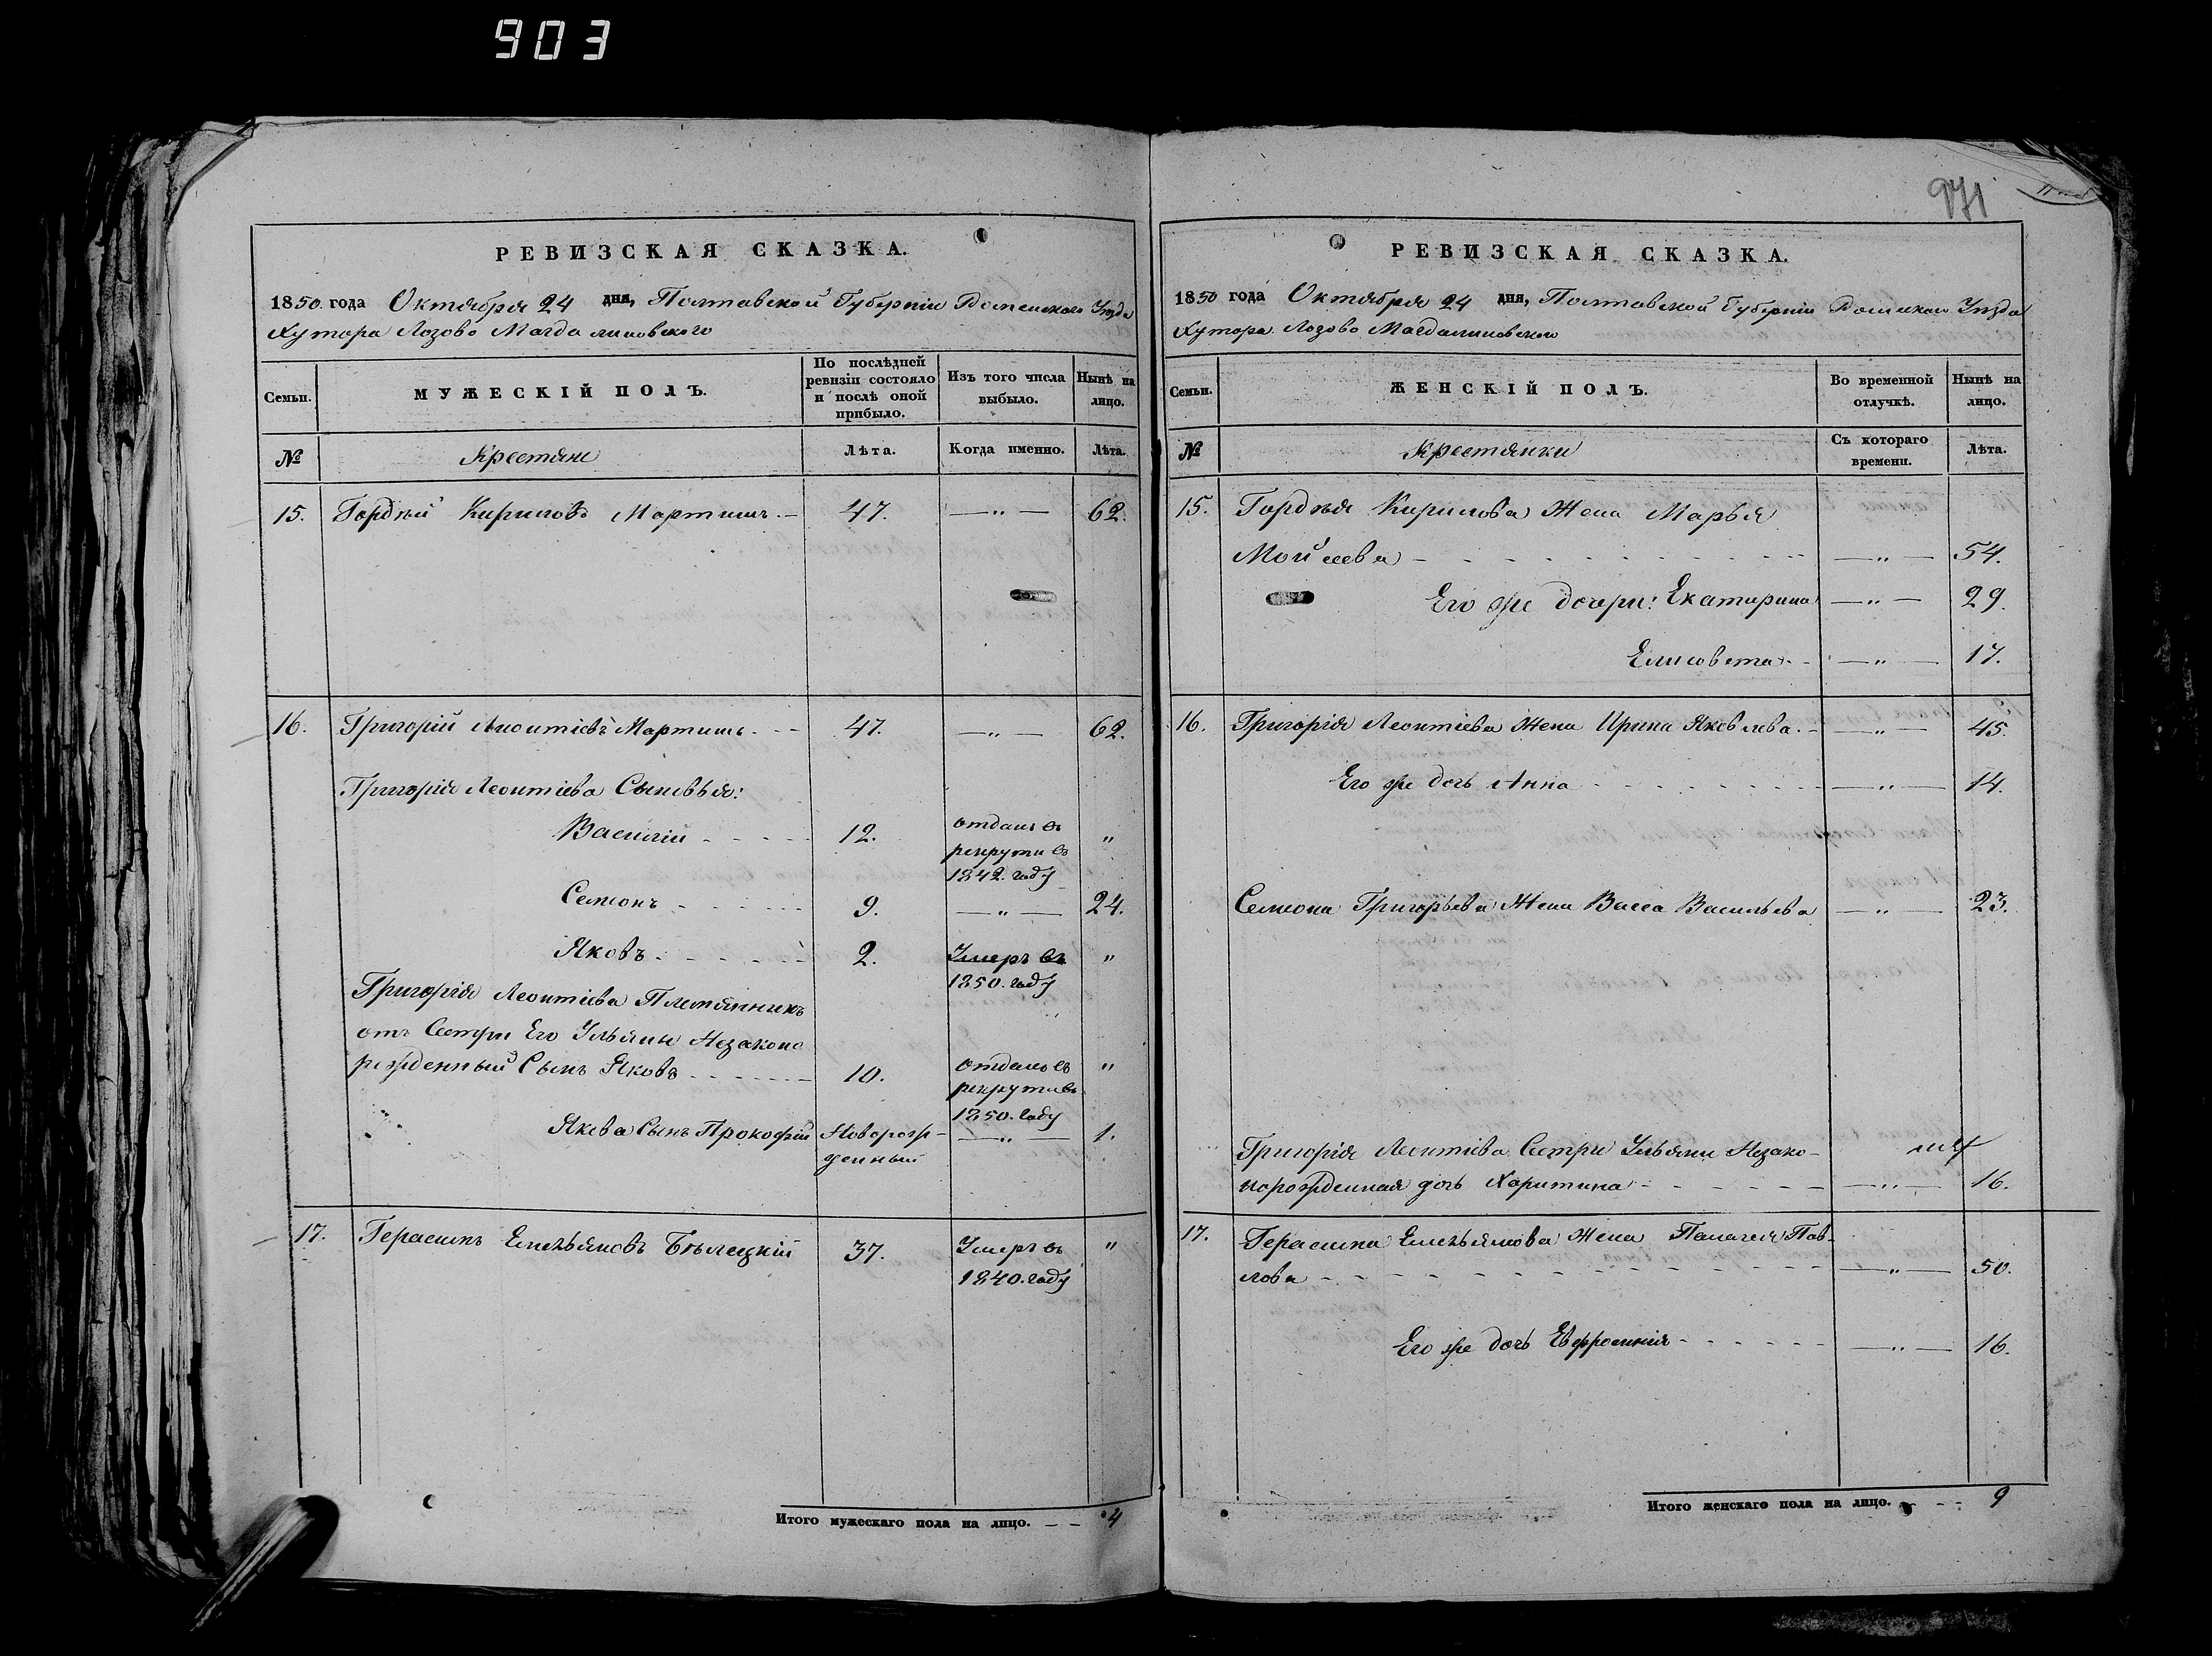 903
РЕВИЗСКАЯ СКАЗКА.
1850 года Октября 24 дня, Полтавской Губерніи Роменского Уѣзда
Хутора Лозово Магдалиновского
Семьи.
МУЖЕСКІЙ ПОЛЪ.
По послѣдней ревизіи состояло и послѣ оной прибыло.
Изъ того числа выбыло.
Нынѣ на лицо.
№ Крестяне Лѣта. Когда именно. Лѣта.
15. Гордѣй Кириловъ Мартишъ 47. —"— 62.
16. Григорій Леонтіевъ Мартишъ 47. —"— 62.
Григорія Леонтіева Сыновья:
Василій 12. отданъ въ рекрути въ 1842. году "
Семіонъ 9. —"— 24.
Яковъ 2. Умеръ въ 1850. году "
Григорія Леонтіева Племянникъ
отъ Сестри Его Ульяны Незаконо
рожденный Сынъ Яковъ 10. отданъ въ рекрути въ 1850. году "
Якова Сынъ Прокофій Новорож-денный —"— 1.
17. Герасимъ Емельяновъ Бѣлецкій 37. Умеръ въ 1840. году "
Итого мужескаго пола на лицо. — — 4
971
РЕВИЗСКАЯ СКАЗКА.
1850 года Октября 24 дня, Полтавской Губерніи Роменского Уѣзда
Хутора Лозово Магдалиновского
Семьи.
ЖЕНСКІЙ ПОЛЪ.
Во временной отлучкѣ.
Нынѣ на лицо.
№ Крестянки Съ котораго времени. Лѣта.
15. Гордѣя Кирилова Жена Марья
Мойсеева —"— 54.
Его же дочери: Екатерина —"— 29.
Елисовета —"— 17.
16. Григорія Леонтіева Жена Ирина Яковлева —"— 45.
Его же дочь Анна —"— 14.
Семіона Григорьева Жена Васса Васильева —"— 23.
Григорія Леонтіева Сестри Ульяни Незако-
норожденная дочь Харитина —"— 16.
17. Герасима Емельянова Жена Палагея Пав-
лова —"— 50.
Его же дочь Евфросинія —"— 16.
Итого женскаго пола на лицо. — — 9